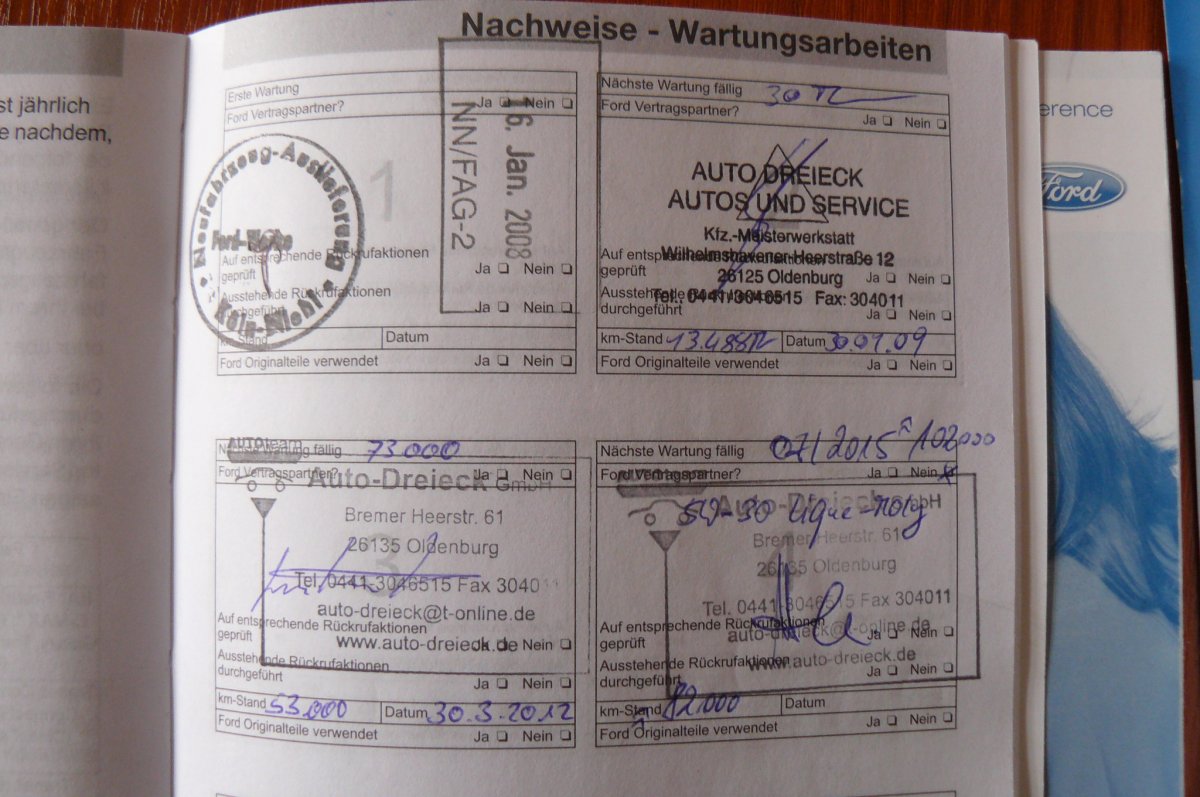 st jährlich
e nachdem,
Nachweise - Wartungsarbeiten
Erste Wartung
Ja ❑ Nein ❑
Ford Vertragspartner?
1
16. Jan. 2008
NN/FAG-2
Neufahrzeug-Auslieferung
Ford-Werke
Köln-Niehl
Auf entsprechende Rückrufaktionen
geprüft
Ja ❑ Nein ❑
Ausstehende Rückrufaktionen
durchgeführt
Ja ❑ Nein ❑
km-Stand
Datum
Ford Originalteile verwendet Ja ❑ Nein ❑
Nächste Wartung fällig
Ford Vertragspartner?
Ja ❑ Nein ❑
AUTO DREIECK
AUTOS UND SERVICE
Kfz.-Meisterwerkstatt
Wilhelmshavener-Heerstraße 12
26125 Oldenburg
Tel.: 0441/3046515 Fax: 304011
Auf entsprechende
geprüft
Ja ❑ Nein ❑
Ausstehende
durchgeführt
Ja ❑ Nein ❑
km-Stand Datum 30.01.09
Ford Originalteile verwendet Ja ❑ Nein ❑
AUTOteam
Nächste Wartung fällig 73.000
Ford Vertragspartner? Ja ❑ Nein ❑
Auto-Dreieck GmbH
Bremer Heerstr. 61
26135 Oldenburg
3
Tel. 0441-3046515 Fax 304011
auto-dreieck@t-online.de
www.auto-dreieck.de
Auf entsprechende Rückrufaktionen
geprüft
Ja ❑ Nein ❑
Ausstehende Rückrufaktionen
durchgeführt
Ja ❑ Nein ❑
km-Stand 53.000 Datum 30.3.2012
Ford Originalteile verwendet Ja ❑ Nein ❑
Nächste Wartung fällig 07/2015 102000
Ford Vertragspartner? Ja ❑ Nein ❑
Auto-Dreieck GmbH
5W-30 Lique-moly
Bremer Heerstr. 61
26135 Oldenburg
4
Tel. 0441-3046515 Fax 304011
auto-dreieck@t-online.de
www.auto-dreieck.de
Auf entsprechende Rückrufaktionen
geprüft
Ja ❑ Nein ❑
Ausstehende Rückrufaktionen
durchgeführt
Ja ❑ Nein ❑
km-Stand 82.000 Datum
Ford Originalteile verwendet Ja ❑ Nein ❑
erence
Ford